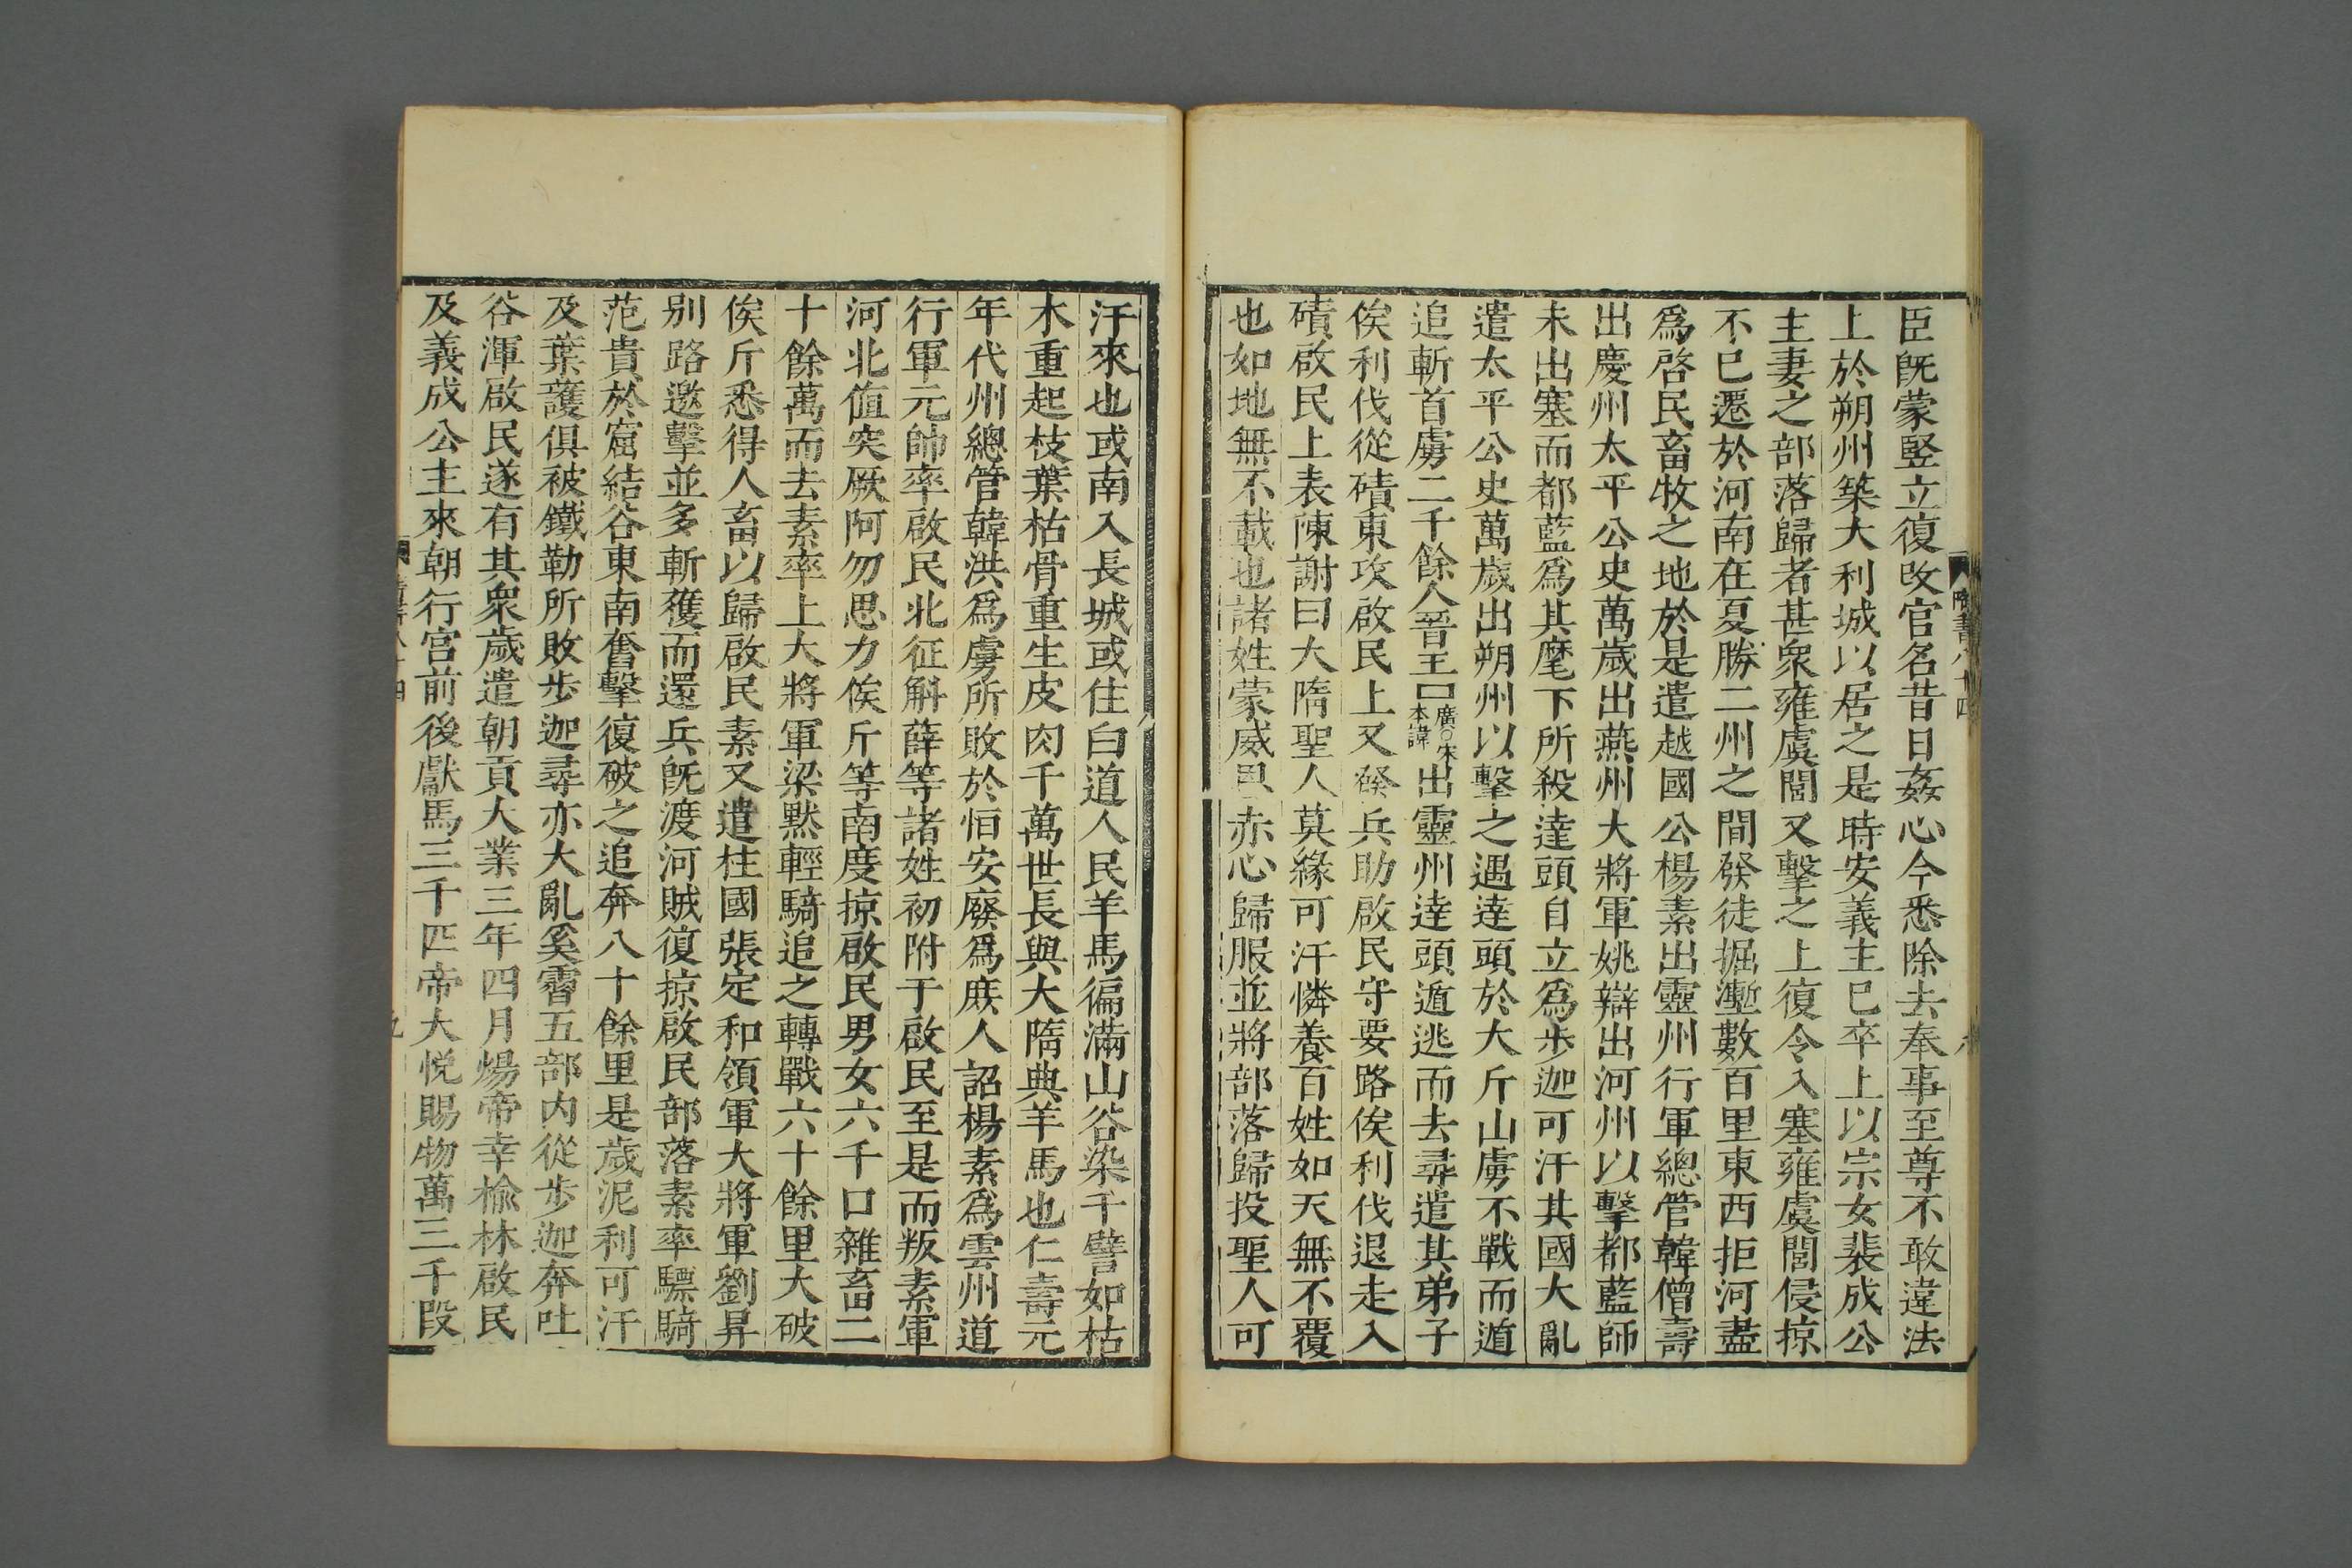 臣旣蒙竪立復改官名昔日姦心今悉除去奉事至尊不敢違法
上於朔州築大利城以居之是時安義主巳卒上以宗女義成公
主妻之部落歸者甚衆雍虞閭又擊之上復令入塞雍虞閭侵掠
不巳遷於河南在夏勝二州之間發徒掘壍數百里東西拒河盡
爲啓民畜牧之地於是遣越國公楊素出靈州行軍總管韓僧壽
出慶州太平公史萬歲出燕州大將軍姚辯出河州以擊都藍師
未出塞而都藍爲其麾下所殺達頭自立爲步迦可汗其國大亂
遣太平公史萬歲出朔州以擊之遇達頭於大斤山虜不戰而遁
追斬首虜二千餘人晉王囗廣○宋本諱出靈州達頭遁逃而去尋遣其弟子
俟利伐從磧東攻啟民上又發兵助啟民守要路俟利伐退走入
磧啟民上表陳謝曰大隋聖人莫緣可汗憐養百姓如天無不覆
也如地無不載也諸姓蒙威恩赤心歸服並將部落歸投聖人可
隋書八十四
八
汗來也或南入長城或住白道人民羊馬徧滿山谷染干譬如枯
木重起枝葉枯骨重生皮肉千萬世長與大隋典羊馬也仁壽元
年代州總管韓洪爲虜所敗於恒安廢爲庶人詔楊素爲雲州道
行軍元帥率啟民北征斛薛等諸姓初附于啟民至是而叛素軍
河北值突厥阿勿思力俟斤等南度掠啟民男女六千口雜畜二
十餘萬而去素率上大將軍梁黙輕騎追之轉戰六十餘里大破
俟斤悉得人畜以歸啟民素又遣柱國張定和領軍大將軍劉昇
别路邀擊並多斬獲而還兵旣渡河賊復掠啟民部落素率驃騎
范貴於窟結谷東南奮擊復破之追奔八十餘里是歲泥利可汗
及葉護俱被鐵勒所敗步迦尋亦大亂奚霫五部内從步迦奔吐
谷渾啟民遂有其衆歲遣朝貢大業三年四月煬帝幸榆林啟民
及義成公主來朝行宮前後獻馬三千匹帝大悅賜物萬三千段
九